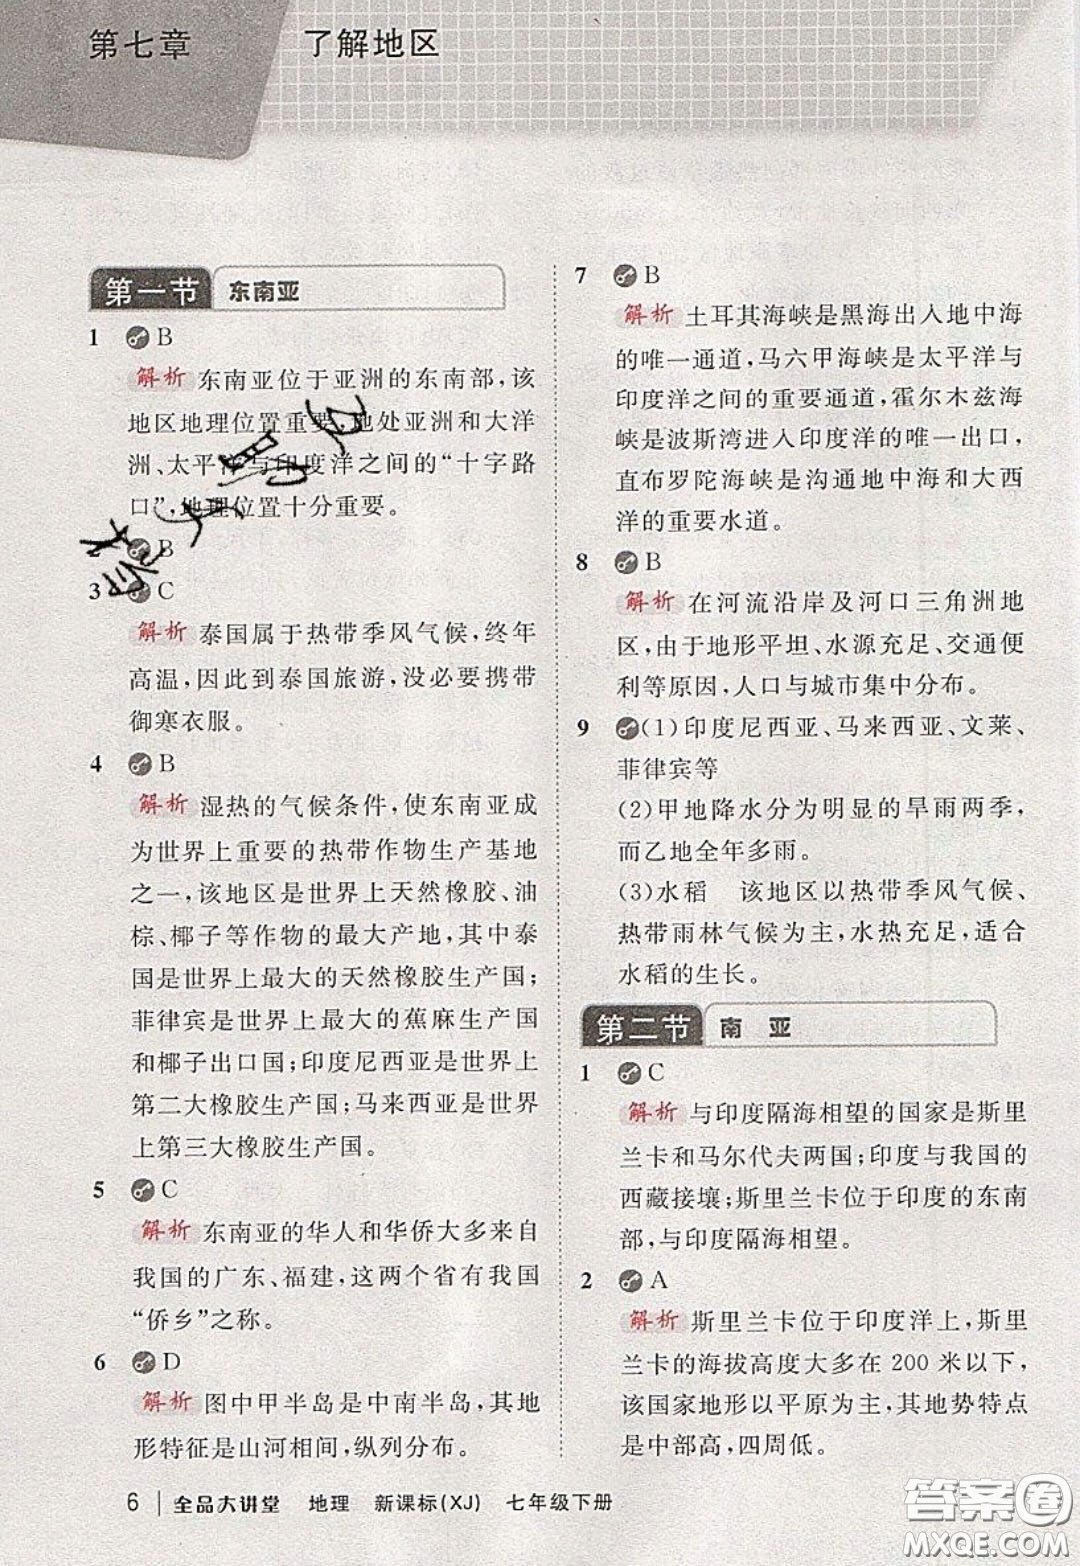 第七章 了解地区
第一节 东南亚
1 B
解析 东南亚位于亚洲的东南部,该
地区地理位置重要,地处亚洲和大洋
洲、太平洋与印度洋之间的“十字路
口”,地理位置十分重要。
2 B
3 C
解析 泰国属于热带季风气候,终年
高温,因此到泰国旅游,没必要携带
御寒衣服。
4 B
解析 湿热的气候条件,使东南亚成
为世界上重要的热带作物生产基地
之一,该地区是世界上天然橡胶、油
棕、椰子等作物的最大产地,其中泰
国是世界上最大的天然橡胶生产国;
菲律宾是世界上最大的蕉麻生产国
和椰子出口国;印度尼西亚是世界上
第二大橡胶生产国;马来西亚是世界
上第三大橡胶生产国。
5 C
解析 东南亚的华人和华侨大多来自
我国的广东、福建,这两个省有我国
“侨乡”之称。
6 D
解析 图中甲半岛是中南半岛,其地
形特征是山河相间,纵列分布。
7 B
解析 土耳其海峡是黑海出入地中海
的唯一通道,马六甲海峡是太平洋与
印度洋之间的重要通道,霍尔木兹海
峡是波斯湾进入印度洋的唯一出口,
直布罗陀海峡是沟通地中海和大西
洋的重要水道。
8 B
解析 在河流沿岸及河口三角洲地
区,由于地形平坦、水源充足、交通便
利等原因,人口与城市集中分布。
9 (1)印度尼西亚、马来西亚、文莱、
菲律宾等
(2)甲地降水分为明显的旱雨两季,
而乙地全年多雨。
(3)水稻 该地区以热带季风气候、
热带雨林气候为主,水热充足,适合
水稻的生长。
第二节 南 亚
1 C
解析 与印度隔海相望的国家是斯里
兰卡和马尔代夫两国;印度与我国的
西藏接壤;斯里兰卡位于印度的东南
部,与印度隔海相望。
2 A
解析 斯里兰卡位于印度洋上,斯里
兰卡的海拔高度大多在 200 米以下,
该国家地形以平原为主,其地势特点
是中部高,四周低。
6 全品大讲堂 地理 新课标(XJ) 七年级下册
答案圈
MXQE.COM